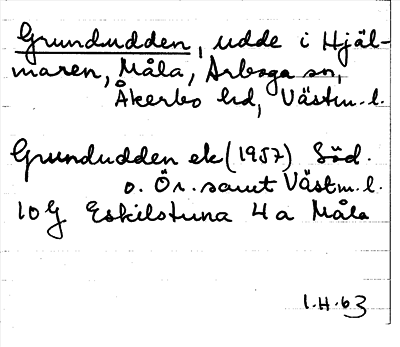 Grundudden, udde i Hjäl-
maren, Måla, Arboga sn,
Åkerbo hd, Västm. l.
Grundudden ek (1957) Söd.
o. Ör. samt Västm. l.
10 G Eskilstuna 4 a Måla
1.H.63